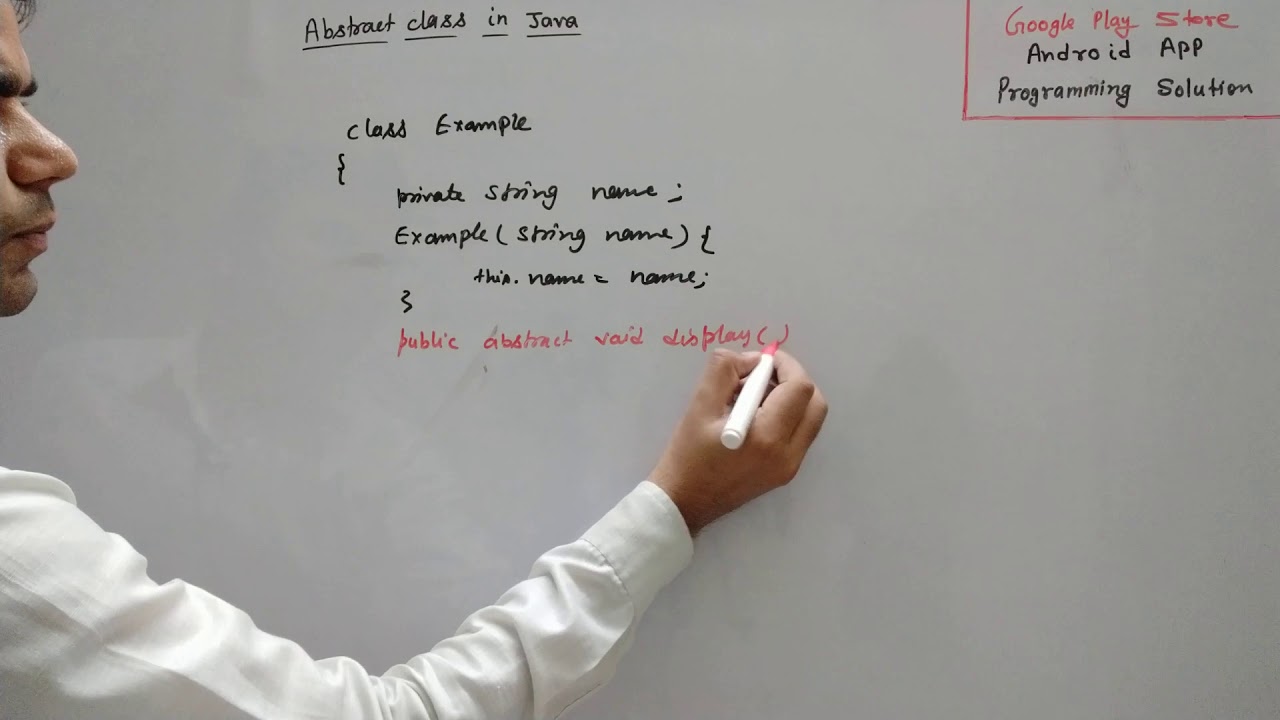 Abstract class in Java
Google Play Store
Android App
Programming Solution
class Example
{
private String name;
Example(String name) {
this.name = name;
}
public abstract void display()